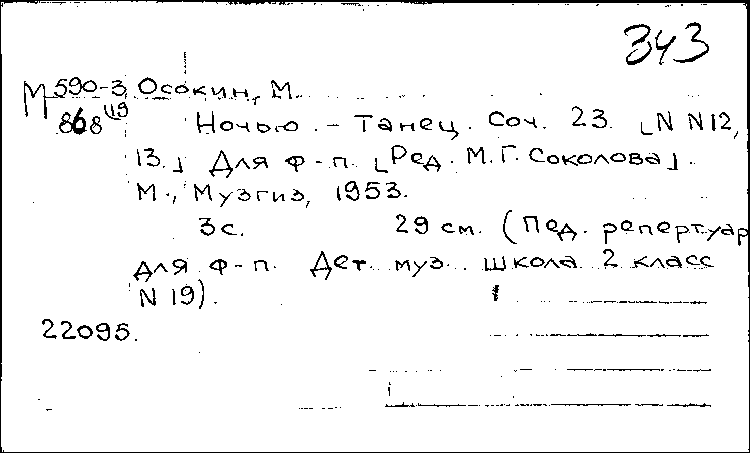 343
М 590-3 Осокин, М.
868(19 Ночью. - Танец. Соч. 23. [N N12,
13.] Для ф-п. [Ред. М.Г. Соколова].
М., Музгиз, 1953.
3с. 29 см. (Пед. репертуар
для ф-п. Дет. муз. школа 2 класс
N 19).
22095.